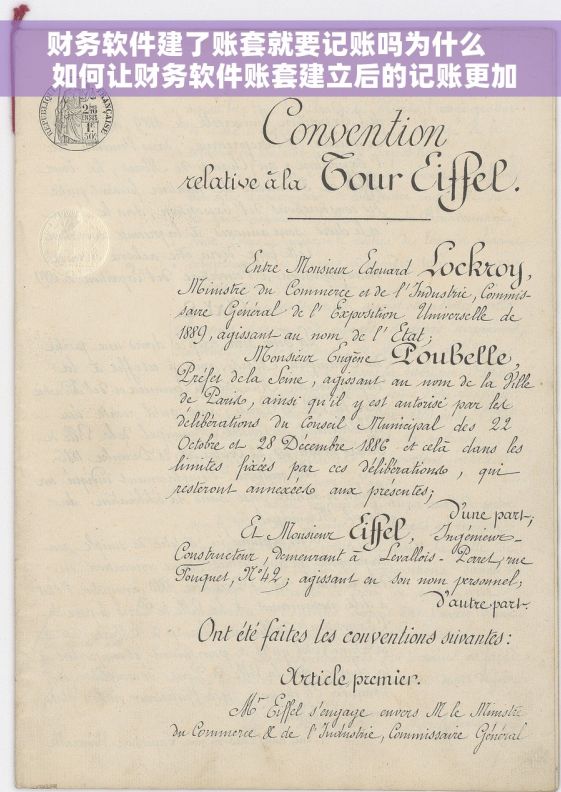 财务软件建了账套就要记账吗为什么
如何让财务软件账套建立后的记账更加
RÉPUBLIQUE FRANÇAISE
Convention
relative à la Tour Eiffel.
Entre Monsieur Edouard Lockroy,
Ministre du Commerce et de l'Industrie, Commis-
saire Général de l'Exposition Universelle de
1889, agissant au nom de l'Etat;
Monsieur Eugène Poubelle,
Préfet de la Seine, agissant au nom de la Ville
de Paris, ainsi qu'il y est autorisé par les
délibérations du Conseil Municipal des 22
Octobre et 28 Décembre 1886 et celà dans les
limites fixées par ces délibérations, qui
resteront annexées aux présentes;
D'une part;
Et Monsieur Eiffel, Ingénieur-
Constructeur, demeurant à Levallois-Perret, rue
Fouquet, N° 42; agissant en son nom personnel;
D'autre part.
Ont été faites les conventions suivantes:
Article premier.
Mr Eiffel s'engage envers M le Ministre
du Commerce & de l'Industrie, Commissaire Général